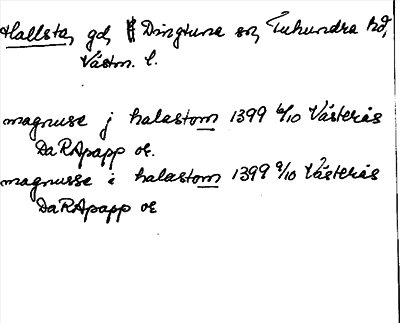 Hallsta, gd, Dingtuna sn, Tuhundra hd,
Västm. l.
magnuse j halastom 1399 6/10 Västerås
DaRApapp or.
magnusse i halastom 1399 9/10 Västerås
DaRApapp or